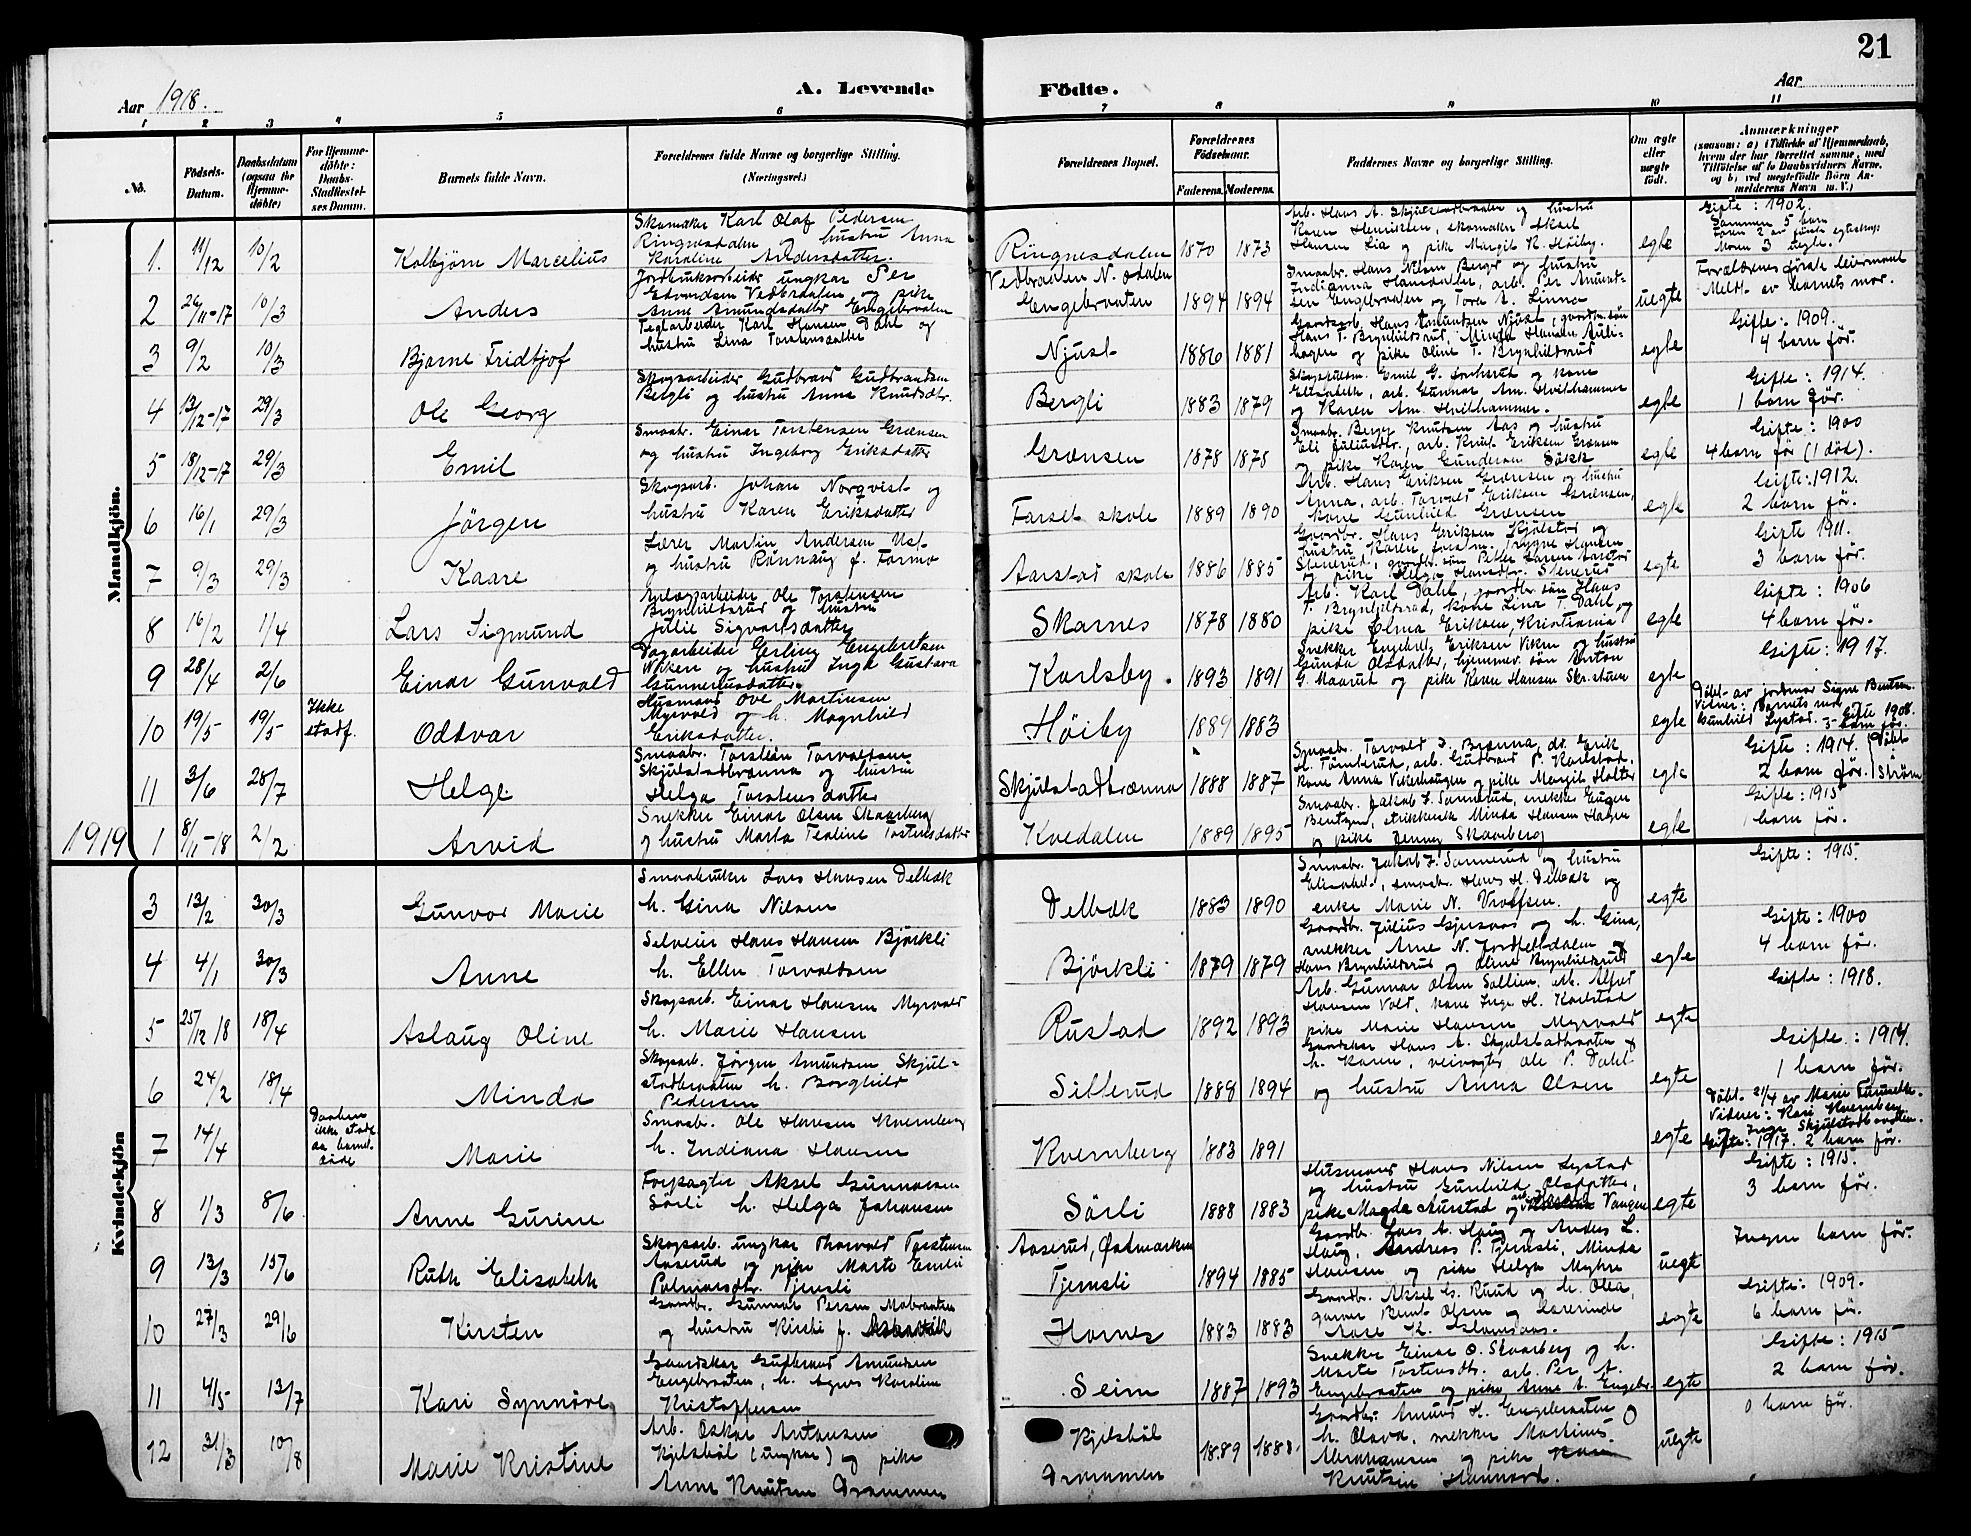 21
Aar 1918.
A. Levende Födte.
Aar
1 2 3 4 5 6 7 8 9 10 11
No.
Födsels-Datum.
Daabsdatum (ogsaa for Hjemmedöbte)
For Hjemmedöbte: Daabs-Stadfestelses Datum.
Barnets fulde Navn.
Forældrenes fulde Navne og borgerlige Stilling. (Næringsvei.)
Forældrenes Bopæl.
Forældrenes Födselsaar.
Faderens. Moderens.
Faddernes Navne og borgerlige Stilling.
Om ægte eller uægte födt.
Anmærkninger
(saasom: a) i Tilfælde af Hjemmedaab, hvem der har forrettet samme, med Tilföielse af to Daabsvidners Navne, og b) ved uægtefödte Börn Anmelderens Navn m. V.)
Mandkjön.
1. 11/12 10/2 Kolbjörn Marcelius
Skomaker Karl Olaf Pedersen
Ringnesdalen og hustru Anna
Karoline Andersdatter.
Ringnesdalen 1870 1873
Arb. Hans A. Skjulstadbraaten og hustru
Karen Henriksen, skomaker Aksel
Hansen Lia og pike Margit K. Höiby.
egte
Gifte: 1902.
Sammen 5 barn
2 26/11-17 10/3 Anders
Jordbruksarbeider ungkar Per
Edvardsen Vedbraaten og pike
Anne Amundsdatter Engebraaten
Vedbraaten N. Odalen
Engebraaten 1894 1894
Smaabr. Hans Nilsen Berger og hustru
Indianna Hansdatter, arb. Per Amundsen Engebraaten og Tora A. Linna
uegte
Forældrenes første leiermaal
Meldt av barnets mor.
3 9/2 10/3 Bjarne Fridtjof
Teglarbeider Karl Hansen Dahl og
hustru Lina Torstensdatter
Njust 1886 1881
Hans T. Brynhildsrud, Minda Hansen
og pike Oline T. Brynhildsrud
egte
Gifte: 1909.
4 barn før.
4 13/12-17 29/3 Ole Georg
Skogsarbeider Gudbrand Gudbrandsen
Bergli og hustru Anne Knudsdtr.
Bergli 1883 1879
Elisabeth, arb. Gunnar Am. Hvithammer
og Karen Am. Hvithammer.
egte
Gifte: 1914.
1 barn før.
5 18/12-17 29/3 Emil
Smaabr. Einar Torstensen Grænsen
og hustru Ingeborg Eriksdatter
Grænsen 1878 1878
Smaabr. Berger Knutsen Aas og hustru
Eli Juliusdtr, arb. Knut Eriksen Grænsen
og pike Karen Gundersen
egte
Gifte: 1900
4 barn før (1 død).
6 16/1 29/3 Jörgen
Skogsarb. Johan Norqvist og
hustru Karen Eriksdatter
Farset skole 1889 1890
Arb. Hans Eriksen Grænsen og hustru
Anna, arb. Torvald Eriksen Grænsen,
kone Gunhild Grænsen
egte
Gifte: 1912.
2 barn før.
7 9/3 29/3 Kaare
Lærer Martin Andersen Ust
og hustru Rønnaug f. Formo
Aarstad skole 1886 1885
Gaardbr. Hans Eriksen Kjölstad og
og pike Helga Hansdtr. Stenerud
egte
Gifte 1911.
3 barn før.
8 16/2 1/4 Lars Sigmund
Anlægsarbeider Ole Torstensen
Brynhildsrud og hustru
Julie Sigvartsdatter
Skarnes 1878 1880
Arb. Karl Dahl, gaardbr. søn Hans
T. Brynhildsrud, kone Lina T. Dahl, og
pike Elma Eriksen, Kristiania
egte
Gifte: 1906
4 barn før.
9 28/4 2/6 Einar Gunvald
Dagarbeider Erling Engebretsen
Vikken og hustru Inga Gustava
Gunneriusdatter
Karlsby. 1893 1891
Snekker Engebret Eriksen Viken og hustru
Gunda Olsdatter, hjemmev. søn Anton
G. Maarud og pike Karen Hansen
egte
Gifte: 1917.
10 19/5 19/5 Ikke stadf. Oddvar
Husmand Ole Martinsen
Myrvold og h. Magnhild
Eriksdatter.
Höiby 1889 1883
egte
Döbt av jordmor Signe Bentsen.
Vidner: Barnets mor
Gunhild Lystad. Gifte 1908.
3 barn før.
11 3/6 28/7 Helge
Smaabr. Torstein Torvaldsen
Skjulstadbrænna og hustru
Helga Torstensdatter
Skjulstadbrænna 1888 1887
Smaabr. Torvald S. Brænna, do. Erik
H. Tomterud, arb. Gudbrand P. Karlstad,
kone Anna Vikerhaugen og pike Margit Holter
egte
Gifte: 1914.
2 barn før.
Döbt i Ström
1919 1 8/11-18 2/2 Arvid
Snekker Einar Olsen Skaarberg
og hustru Marta Teoline Torstensdatter
Kvedalen 1889 1895
Smaabr. Jakob J. Sannerud, snekker Eugen
Berntzen, strikkerske Minda Hansen Hagen
og pike Jenny Skaarberg
egte
Gifte: 1915
1 barn før.
Kvindekjön
3 13/2 30/3 Gunvor Marie
Smaabruker Lars Hansen Delbæk
h. Gina Nilsen
Delbæk 1883 1890
Smaabr. Jakob J. Sannerud og hustru
Elisabet, smaabr. Hans H. Delbæk og
enke Marie N.
egte
Gifte: 1915.
4 4/1 30/3 Anne
Seleveier Hans Hansen Björkli
h. Ellen Torvaldsen
Björkli 1879 1879
Gaardbr. Julius Gjersaas og h. Gina,
snekker Arne N.
Hans Brynhildsrud og Oline Brynhildsrud
egte
Gifte: 1900
4 barn før.
5 25/12 18 18/4 Aslaug Oline
Skogsarb. Einar Hansen Myrvold
h. Marie Hansen
Rustad 1892 1893
Arb. Gunnar Olsen Sollien, arb. Alfred
Hansen Vold, kone Inga H. Karlstad
pike Marie Hansen Myrvold
egte
Gifte: 1918.
6 24/2 18/4 Minda
Skogsarb. Jørgen Amundsen Skjulstadbraaten h. Borghild
Pedersen
Sillerud 1888 1894
Gaardskar Hans A. Skjulstadbraaten &
h. Karen, veivogter Ole P. Dahl
og hustru Anna Olsen
egte
Gifte: 1914.
1 barn før.
7 14/4 Daaben ikke stadf. da barnet döde Marie
Smaabr. Ole Hansen Kvernberg
h. Indiana Hansen
Kvernberg 1883 1891
egte
Döbt 21/4 av Marie
Vidner: Kari Kvernberg
og Inga Skjulstadbraaten.
Gifte: 1917. 2 barn før.
8 1/3 8/6 Anne Gurine
Forpagter Aksel Gunnarsen
Sörli h. Helga Johansen
Sörli 1888 1883
Husmand Hans Nilsen Lystad
og hustru Gunhild Olsdatter,
pike Magda Aurstad og Vangen
egte
Gifte: 1915.
3 barn før.
9 13/3 15/6 Ruth Elisabeth
Skogsarb. ungkar Thorvald Torstensen
Aaserud og pike Marte Emilie
Palmarsdtr. Tjernsli
Aaserud, Østmarken
Tjernsli 1894 1885
Gaardbr. Lars A. Haug og Anders L.
Haug, Andreas P. Tjernsli, Minda
Hansen og pike Helga Myhre
uegt
Ingen barn før.
10 27/3 29/6 Kirsten
Gaardbr. Gunnar Persen Mobraaten
og hustru Kirsti f.
Hornes 1883 1883
Gaardbr. Aksel G. Ruud og h. Olea,
garver Bernt Olsen og lærerinde
Aase K.
egte
Gifte: 1909.
6 barn før.
11 4/5 13/7 Kari Synnöve
Gaardskar Gudbrand Amundsen
Engebraaten, h. Agnes Karoline
Kristoffersen
Seim 1887 1893
Snekker Einar O. Skaarberg og h.
Marte Torstensdtr. arb. Per A.
Engebraaten og pike Anne A. Engebr.
egte
Gifte: 1915
2 barn før.
12 31/3 10/8 Marie Kristine
Arb. Oskar Antonsen
Kjelsböl (ungkar) og pike
Anne Knutsen Drammen
Kjelsböl
Drammen 1889 1888.
Gaardbr. Amund H. Engebraaten
h. Olava, snekker Martinus
Abrahamsen og pike
Knutsen
uegte
0 barn før.